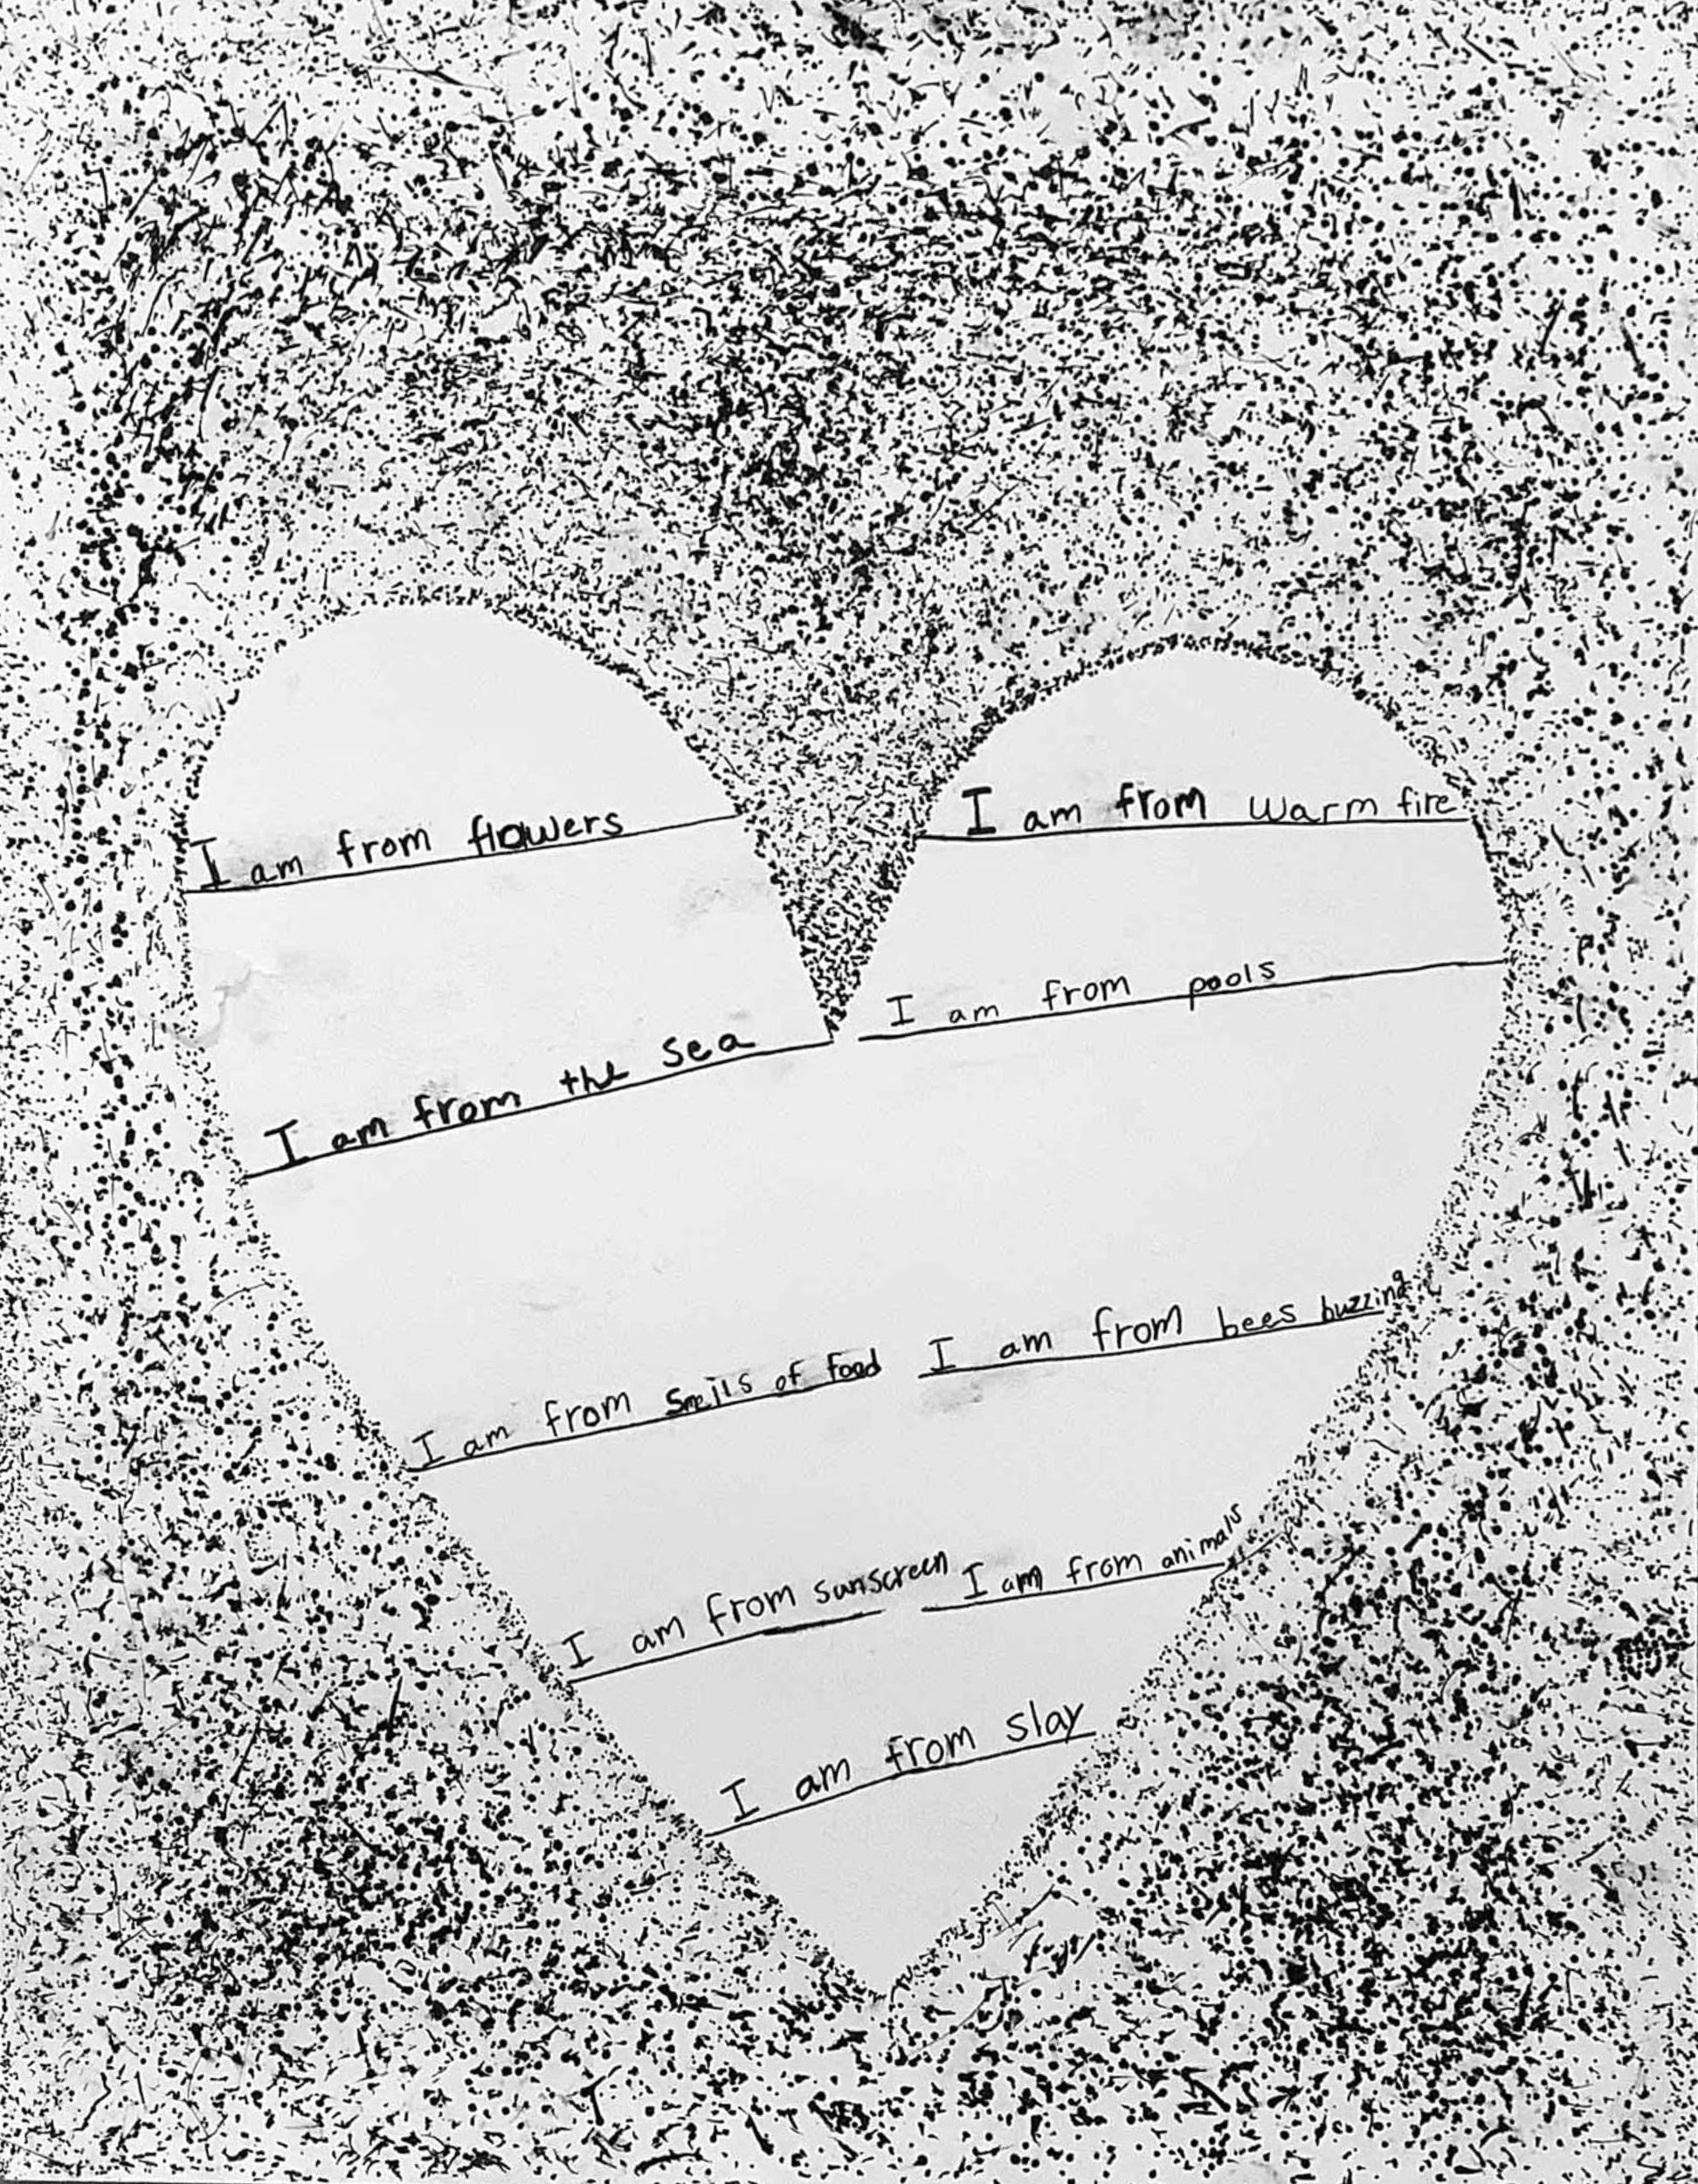 I am from flowers
I am from warm fire
I am from the sea
I am from pools
I am from smells of food
I am from bees buzzing
I am from sunscreen
I am from animals
I am from slay